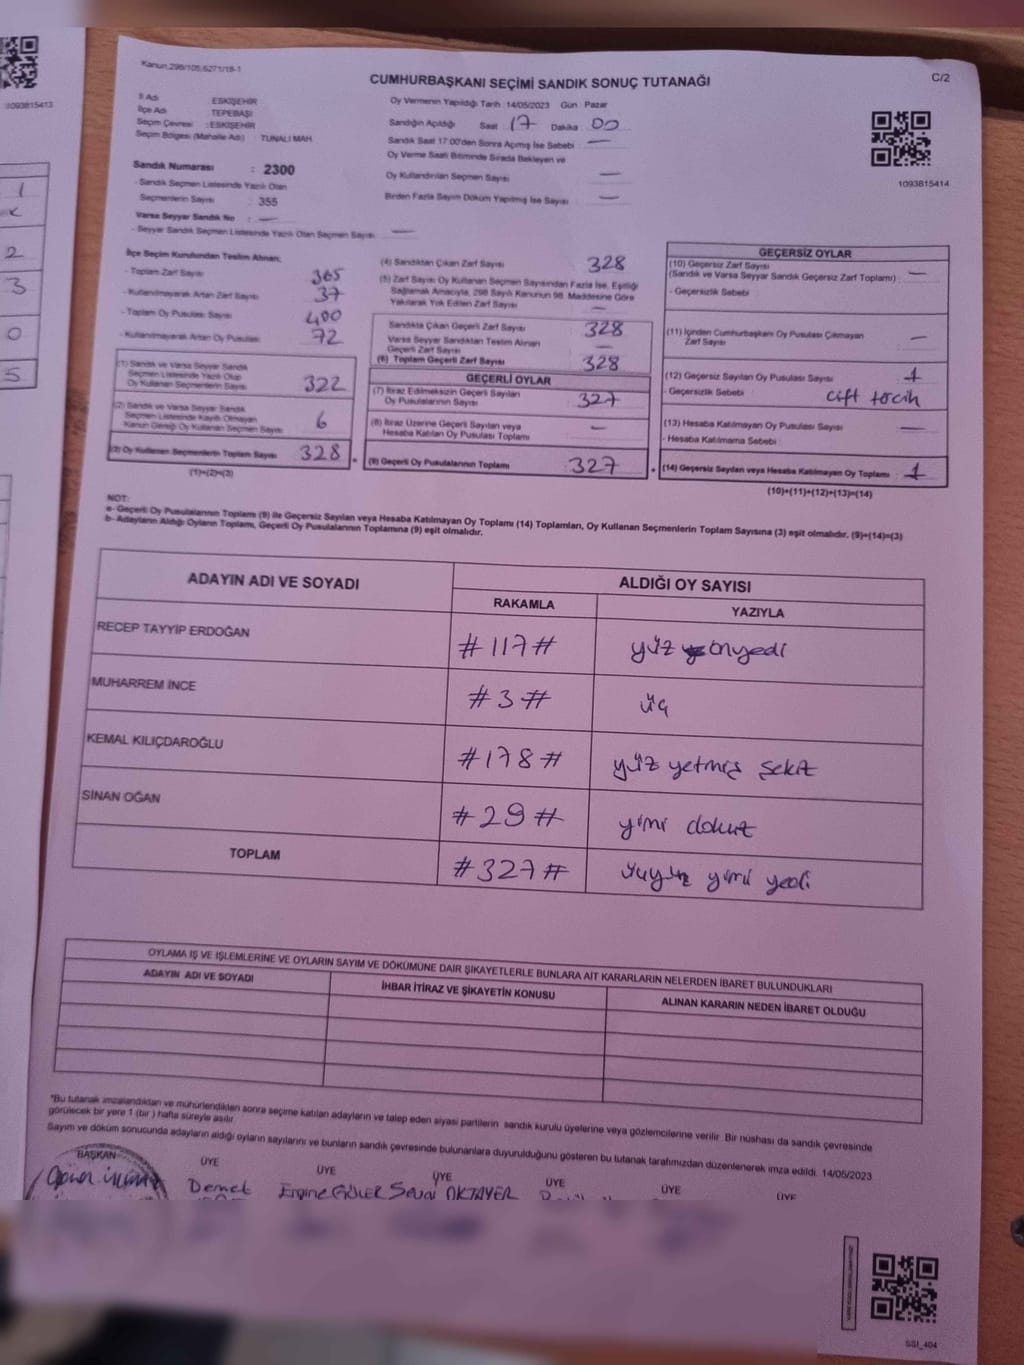 Kanun,298/105,6271/18-1
CUMHURBAŞKANI SEÇİMİ SANDIK SONUÇ TUTANAĞI
C/2
İl Adı ESKİŞEHİR
İlçe Adı TEPEBAŞI
Seçim Çevresi :ESKİŞEHİR
Seçim Bölgesi (Mahalle Adı) : TUNALI MAH.
Oy Vermenin Yapıldığı Tarih :14/05/2023 Gün Pazar
Sandığın Açıldığı Saat 17 Dakika 00
Sandık Saat 17:00'den Sonra Açmış İse Sebebi —
Oy Verme Saati Bitiminde Sırada Bekleyen ve
Oy Kullandırılan Seçmen Sayısı —
Birden Fazla Sayım Döküm Yapılmış İse Sayısı —
1093815413
1093815414
Sandık Numarası : 2300
- Sandık Seçmen Listesinde Yazılı Olan
Seçmenlerin Sayısı : 355
Varsa Seyyar Sandık No : —
- Seyyar Sandık Seçmen Listesinde Yazılı Olan Seçmen Sayısı —
İlçe Seçim Kurulundan Teslim Alınan;
- Toplam Zarf Sayısı 365
- Kullanılmayarak Artan Zarf Sayısı 37
- Toplam Oy Pusulası Sayısı 400
- Kullanılmayarak Artan Oy Pusulası 72
(1) Sandık ve Varsa Seyyar Sandık
Seçmen Listesinde Yazılı Olup
Oy Kullanan Seçmenlerin Sayısı 322
(2) Sandık ve Varsa Seyyar Sandık
Seçmen Listesinde Kayıtlı Olmayan
Kanun Gereği Oy Kullanan Seçmen Sayısı 6
(3) Oy Kullanan Seçmenlerin Toplam Sayısı 328
(1)+(2)=(3)
(4) Sandıktan Çıkan Zarf Sayısı 328
(5) Zarf Sayısı Oy Kullanan Seçmen Sayısından Fazla İse, Eşitliği
Sağlamak Amacıyla, 298 Sayılı Kanunun 98. Maddesine Göre
Yakılarak Yok Edilen Zarf Sayısı —
Sandıkta Çıkan Geçerli Zarf Sayısı 328
Varsa Seyyar Sandıktan Teslim Alınan
Geçerli Zarf Sayısı —
(6) Toplam Geçerli Zarf Sayısı 328
GEÇERLİ OYLAR
(7) İtiraz Edilmeksizin Geçerli Sayılan
Oy Pusulalarının Sayısı 327
(8) İtiraz Üzerine Geçerli Sayılan veya
Hesaba Katılan Oy Pusulası Toplamı —
(9) Geçerli Oy Pusulalarının Toplamı 327
GEÇERSİZ OYLAR
(10) Geçersiz Zarf Sayısı
(Sandık ve Varsa Seyyar Sandık Geçersiz Zarf Toplamı) : —
- Geçersizlik Sebebi :
(11) İçinden Cumhurbaşkanı Oy Pusulası Çıkmayan
Zarf Sayısı —
(12) Geçersiz Sayılan Oy Pusulası Sayısı 1
- Geçersizlik Sebebi : çift tercih
(13) Hesaba Katılmayan Oy Pusulası Sayısı —
- Hesaba Katılmama Sebebi :
(14) Geçersiz Sayılan veya Hesaba Katılmayan Oy Toplamı 1
(10)+(11)+(12)+(13)=(14)
NOT:
a- Geçerli Oy Pusulalarının Toplamı (9) ile Geçersiz Sayılan veya Hesaba Katılmayan Oy Toplamı (14) Toplamları, Oy Kullanan Seçmenlerin Toplam Sayısına (3) eşit olmalıdır. (9)+(14)=(3)
b- Adayların Aldığı Oyların Toplamı, Geçerli Oy Pusulalarının Toplamına (9) eşit olmalıdır.
ADAYIN ADI VE SOYADI ALDIĞI OY SAYISI
RAKAMLA YAZIYLA
RECEP TAYYİP ERDOĞAN #117# yüz onyedi
MUHARREM İNCE #3# üç
KEMAL KILIÇDAROĞLU #178# yüz yetmiş sekiz
SİNAN OĞAN #29# yimi dokuz
TOPLAM #327# üçyüz yimi yedi
OYLAMA İŞ VE İŞLEMLERİNE VE OYLARIN SAYIM VE DÖKÜMÜNE DAİR ŞİKAYETLERLE BUNLARA AİT KARARLARIN NELERDEN İBARET BULUNDUKLARI
ADAYIN ADI VE SOYADI İHBAR İTİRAZ VE ŞİKAYETİN KONUSU ALINAN KARARIN NEDEN İBARET OLDUĞU
*Bu tutanak imzalandıktan ve mühürlendikten sonra seçime katılan adayların ve talep eden siyasi partilerin sandık kurulu üyelerine veya gözlemcilerine verilir. Bir nüshası da sandık çevresinde
görülecek bir yere 1 (bir ) hafta süreyle asılır.
Sayım ve döküm sonucunda adayların aldığı oyların sayılarını ve bunların sandık çevresinde bulunanlara duyurulduğunu gösteren bu tutanak tarafımızdan düzenlenerek imza edildi. 14/05/2023
BAŞKAN ÜYE ÜYE ÜYE ÜYE ÜYE ÜYE
Demet Emine GÜLER Sevai OKTAYER
SSI_404